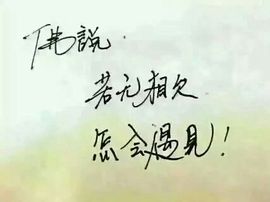 佛說.
若无相欠
怎会遇見!